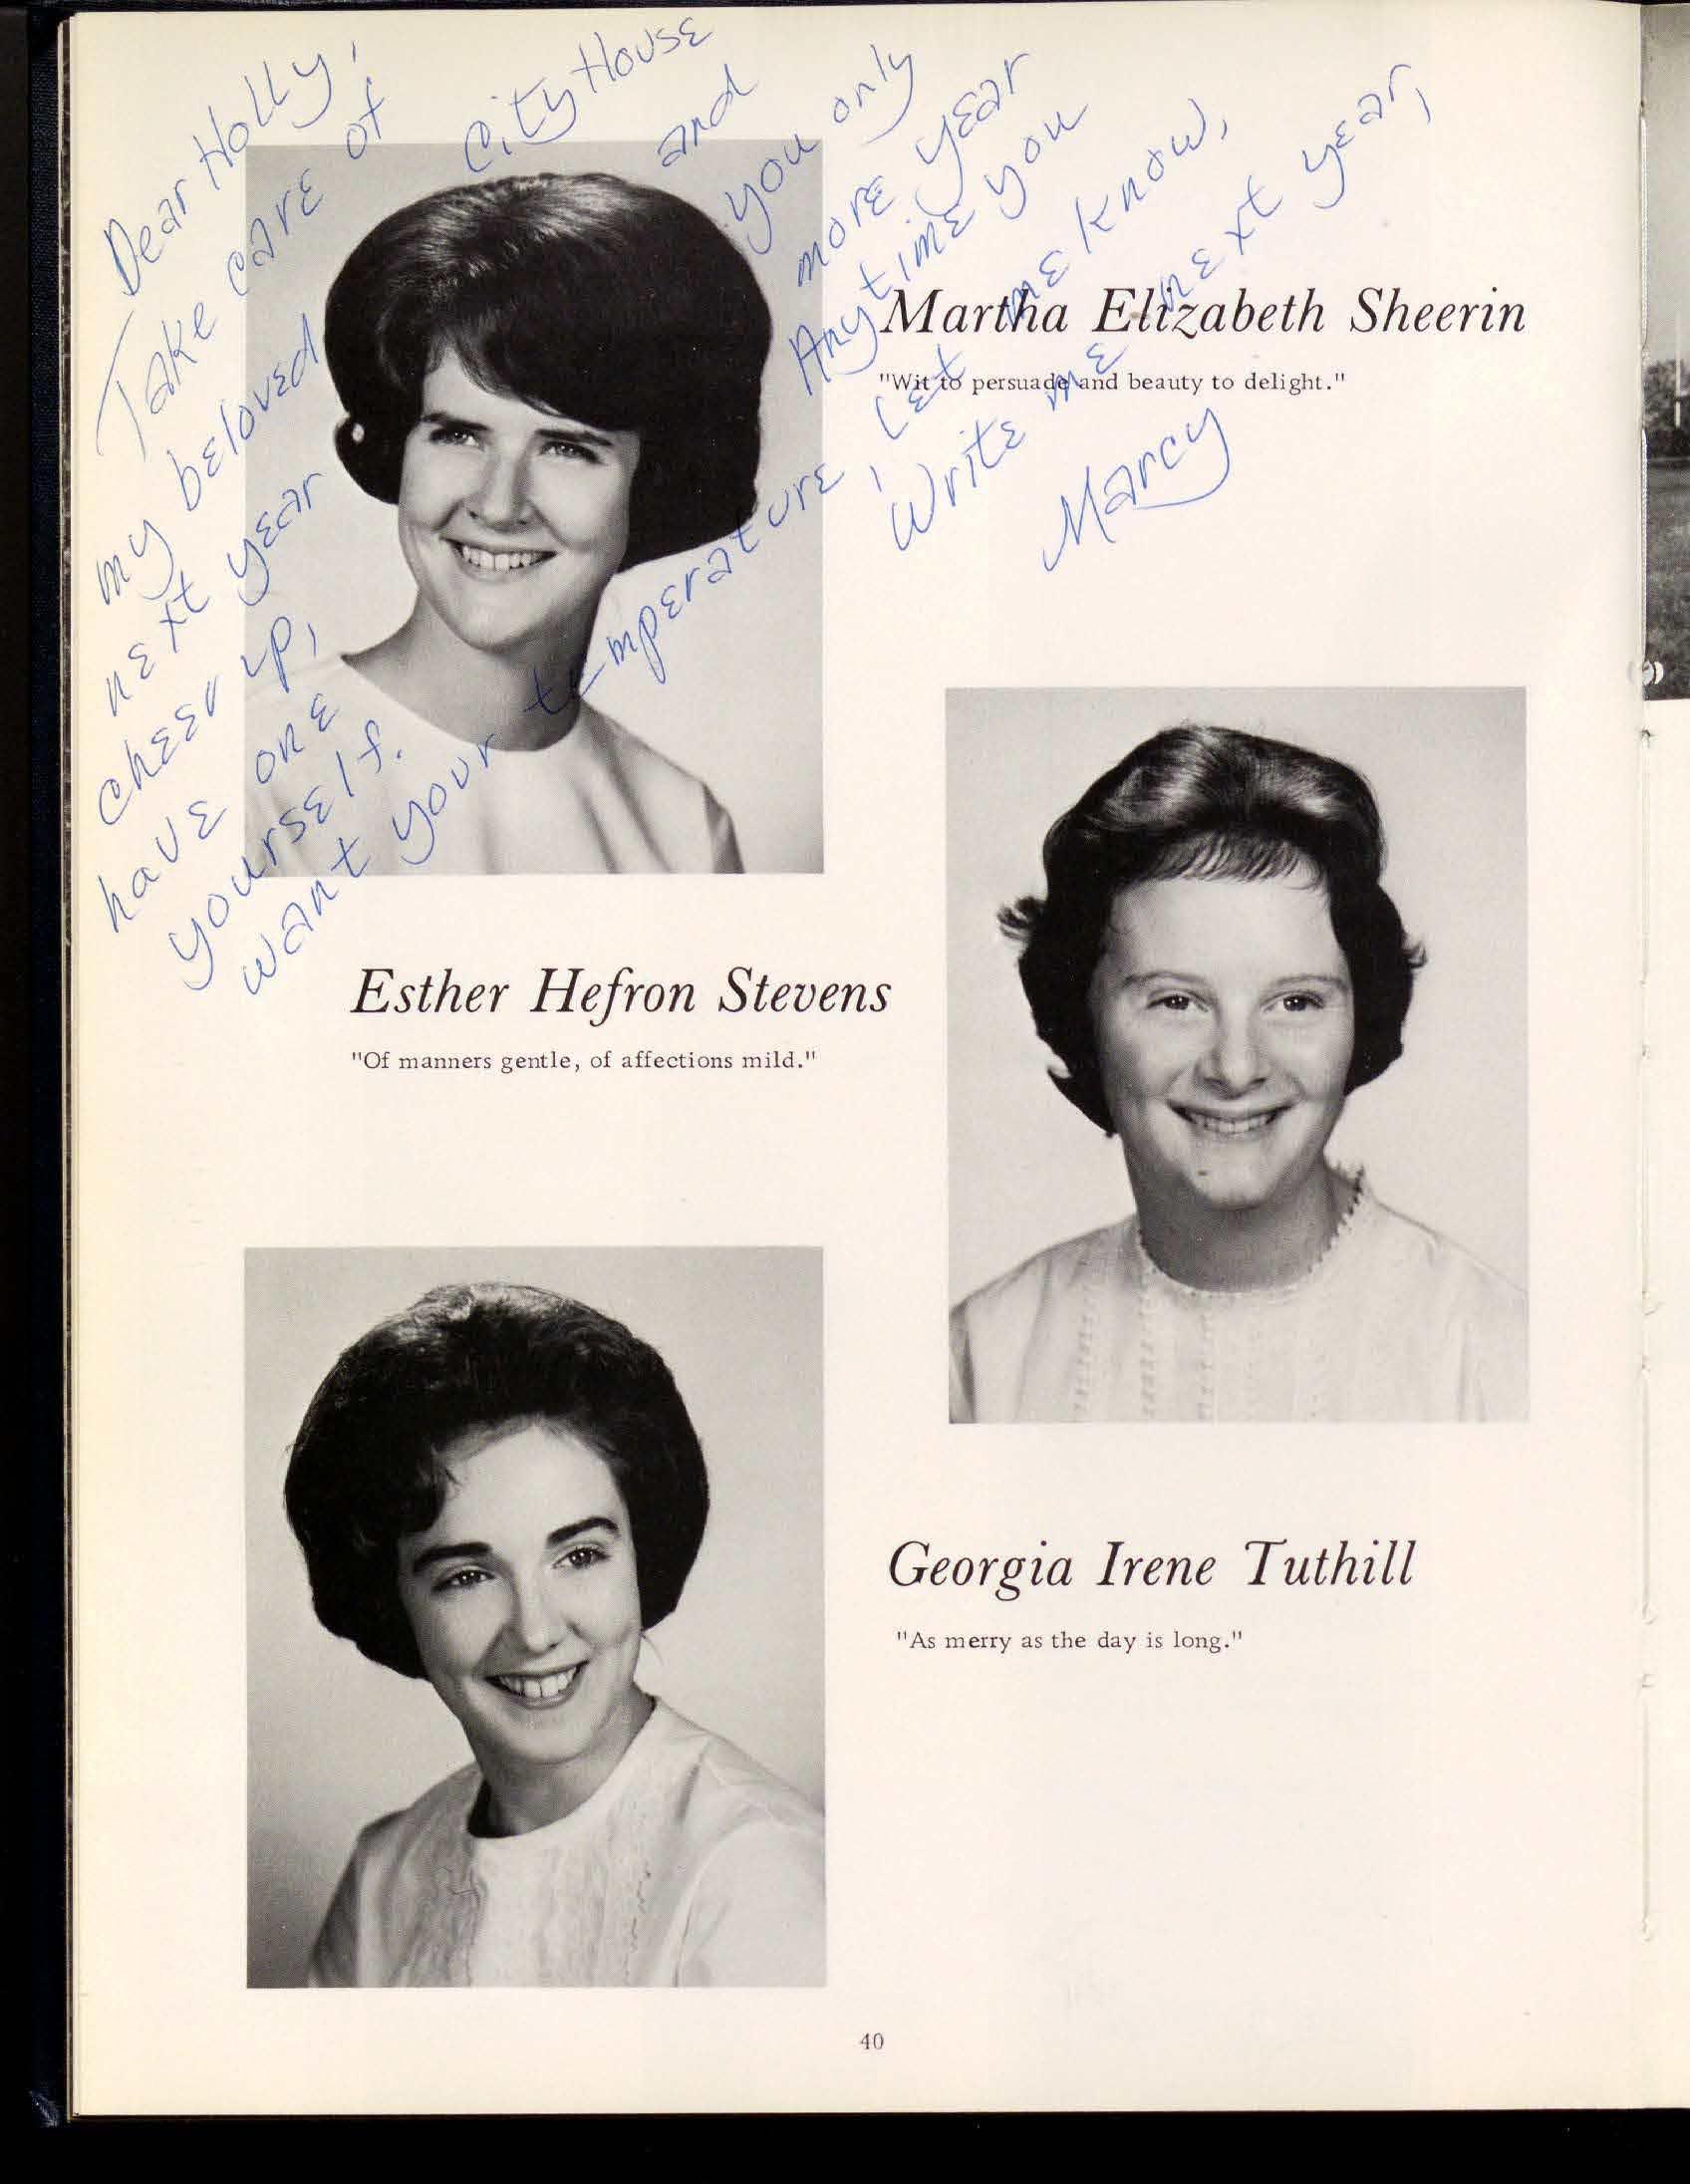 Dear Holly,
Take care of
my beloved City House
next year and
cheer up, you only
have one more year
yourself. Anytime you
want your temperature, let me know,
Write me next year,
Marcy
Martha Elizabeth Sheerin
"Wit to persuade and beauty to delight."
Esther Hefron Stevens
"Of manners gentle, of affections mild."
Georgia Irene Tuthill
"As merry as the day is long."
40